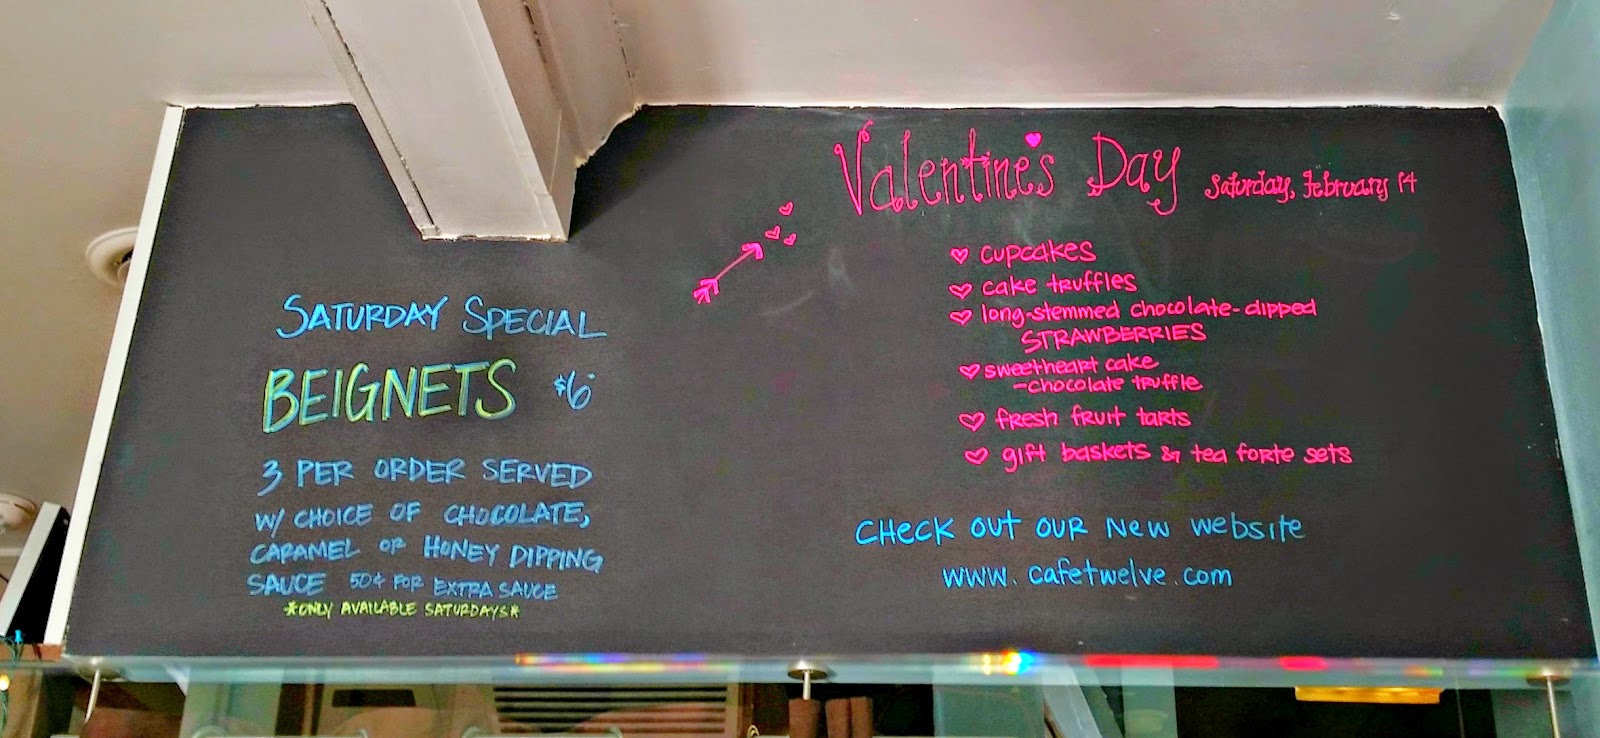 SATURDAY SPECIAL
BEIGNETS $6
3 PER ORDER SERVED
W/ CHOICE OF CHOCOLATE,
CARAMEL OR HONEY DIPPING
SAUCE 50¢ FOR EXTRA SAUCE
*ONLY AVAILABLE SATURDAYS*
Valentine's Day Saturday, February 14
cupcakes
cake truffles
long-stemmed chocolate-dipped
STRAWBERRIES
sweetheart cake
-chocolate truffle
fresh fruit tarts
gift baskets & tea forte sets
CHECK OUT OUR NEW WEBSITE
www.cafetwelve.com